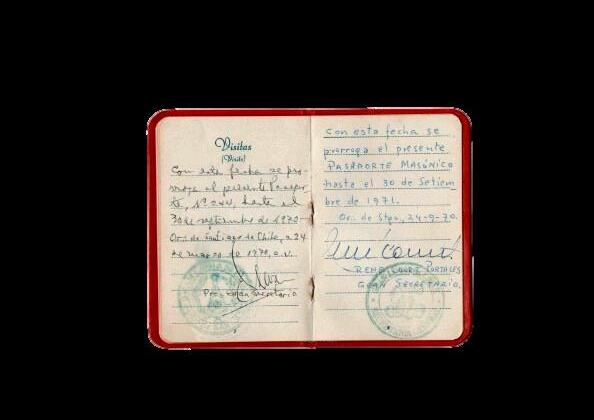 Visitas
(Visits)
Con esta fecha se pro-
rroga el presente Pasapor-
te, Nº 244, hasta el
30 de septiembre de 1970
Or. de Santiago de Chile, a 24
de marzo de 1970, e.v.
Pro- Gran Secretario
Con esta fecha se
prorroga el presente
PASAPORTE MASÓNICO
hasta el 30 de Setiem
bre de 1971.
Or. de Stgo, 24-9-70.
RENE PORTALES
GRAN SECRETARIO.